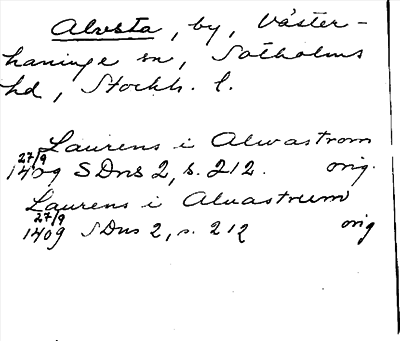 Alvsta, by, Väster-
haninge sn, Sotholms
hd, Stockh. l.
Laurens i Alwastrom
27/9
1409 SDns 2, s. 212. orig.
Laurens i Alvastrum
27/9
1409 SDns 2, s. 212 orig